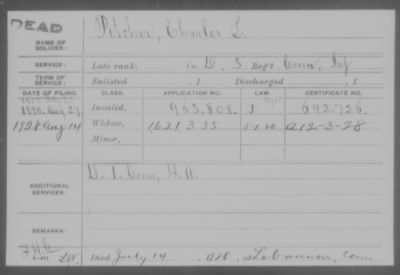 DEAD
NAME OF SOLDIER: Pitcher, Charles L.
SERVICE: Late rank, Co. D, 5 Reg't Conn. Inf
TERM OF SERVICE: Enlisted , 1 Discharged , 1
DATE OF FILING. CLASS. APPLICATION NO. LAW. CERTIFICATE NO.
Aug 27, Invalid, 963.808. 692.726.
1928 Aug 14 Widow, 1621335 A12-3-28
Minor,
ADDITIONAL SERVICES: D. 1. Conn, H. A.
REMARKS:
Died July 14, 1928, at Lebanon, Conn